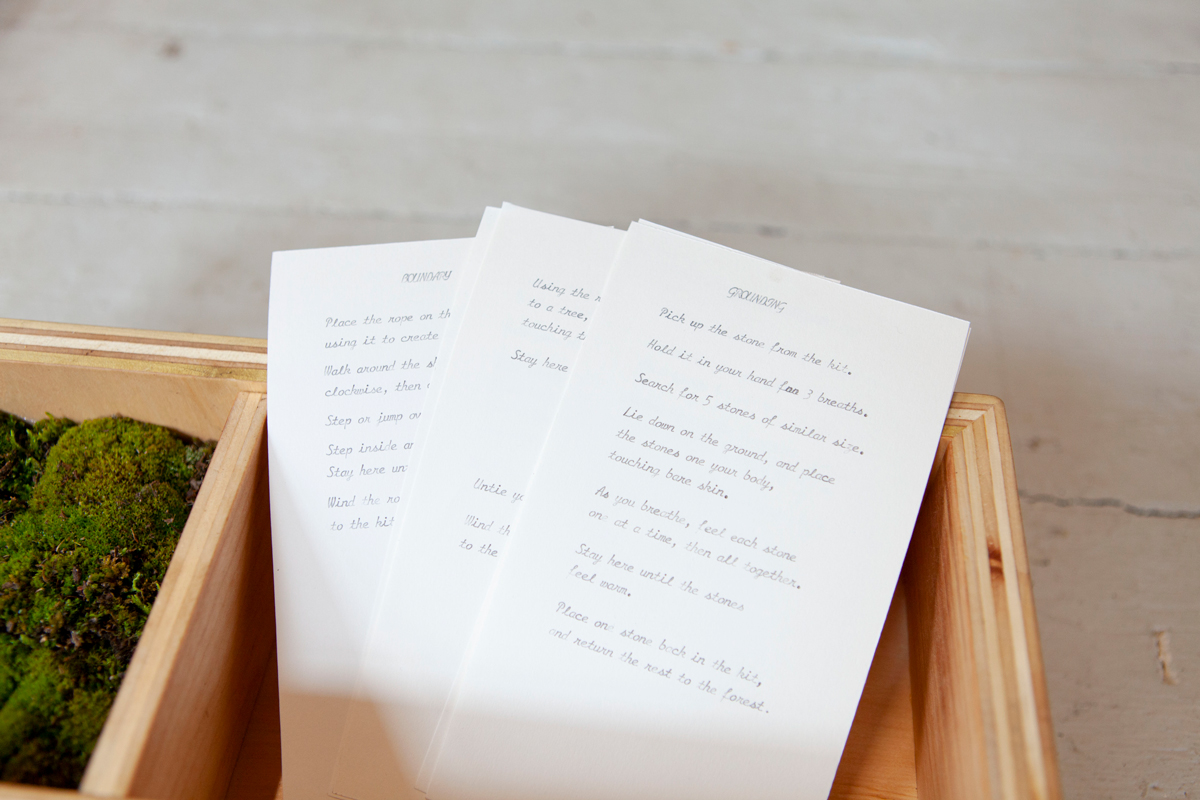 BOUNDARY
Place the rope on th
using it to create
Walk around the sh
clockwise, then
Step or jump ov
Step inside an
Stay here un
Wind the ro
to the kit
Using the r
to a tree,
touching t
Stay here
Untie yo
Wind th
to the
GROUNDING
Pick up the stone from the kit.
Hold it in your hand for 3 breaths.
Search for 5 stones of similar size.
Lie down on the ground, and place
the stones one your body,
touching bare skin.
As you breathe, feel each stone
one at a time, then all together.
Stay here until the stones
feel warm.
Place one stone back in the kit,
and return the rest to the forest.